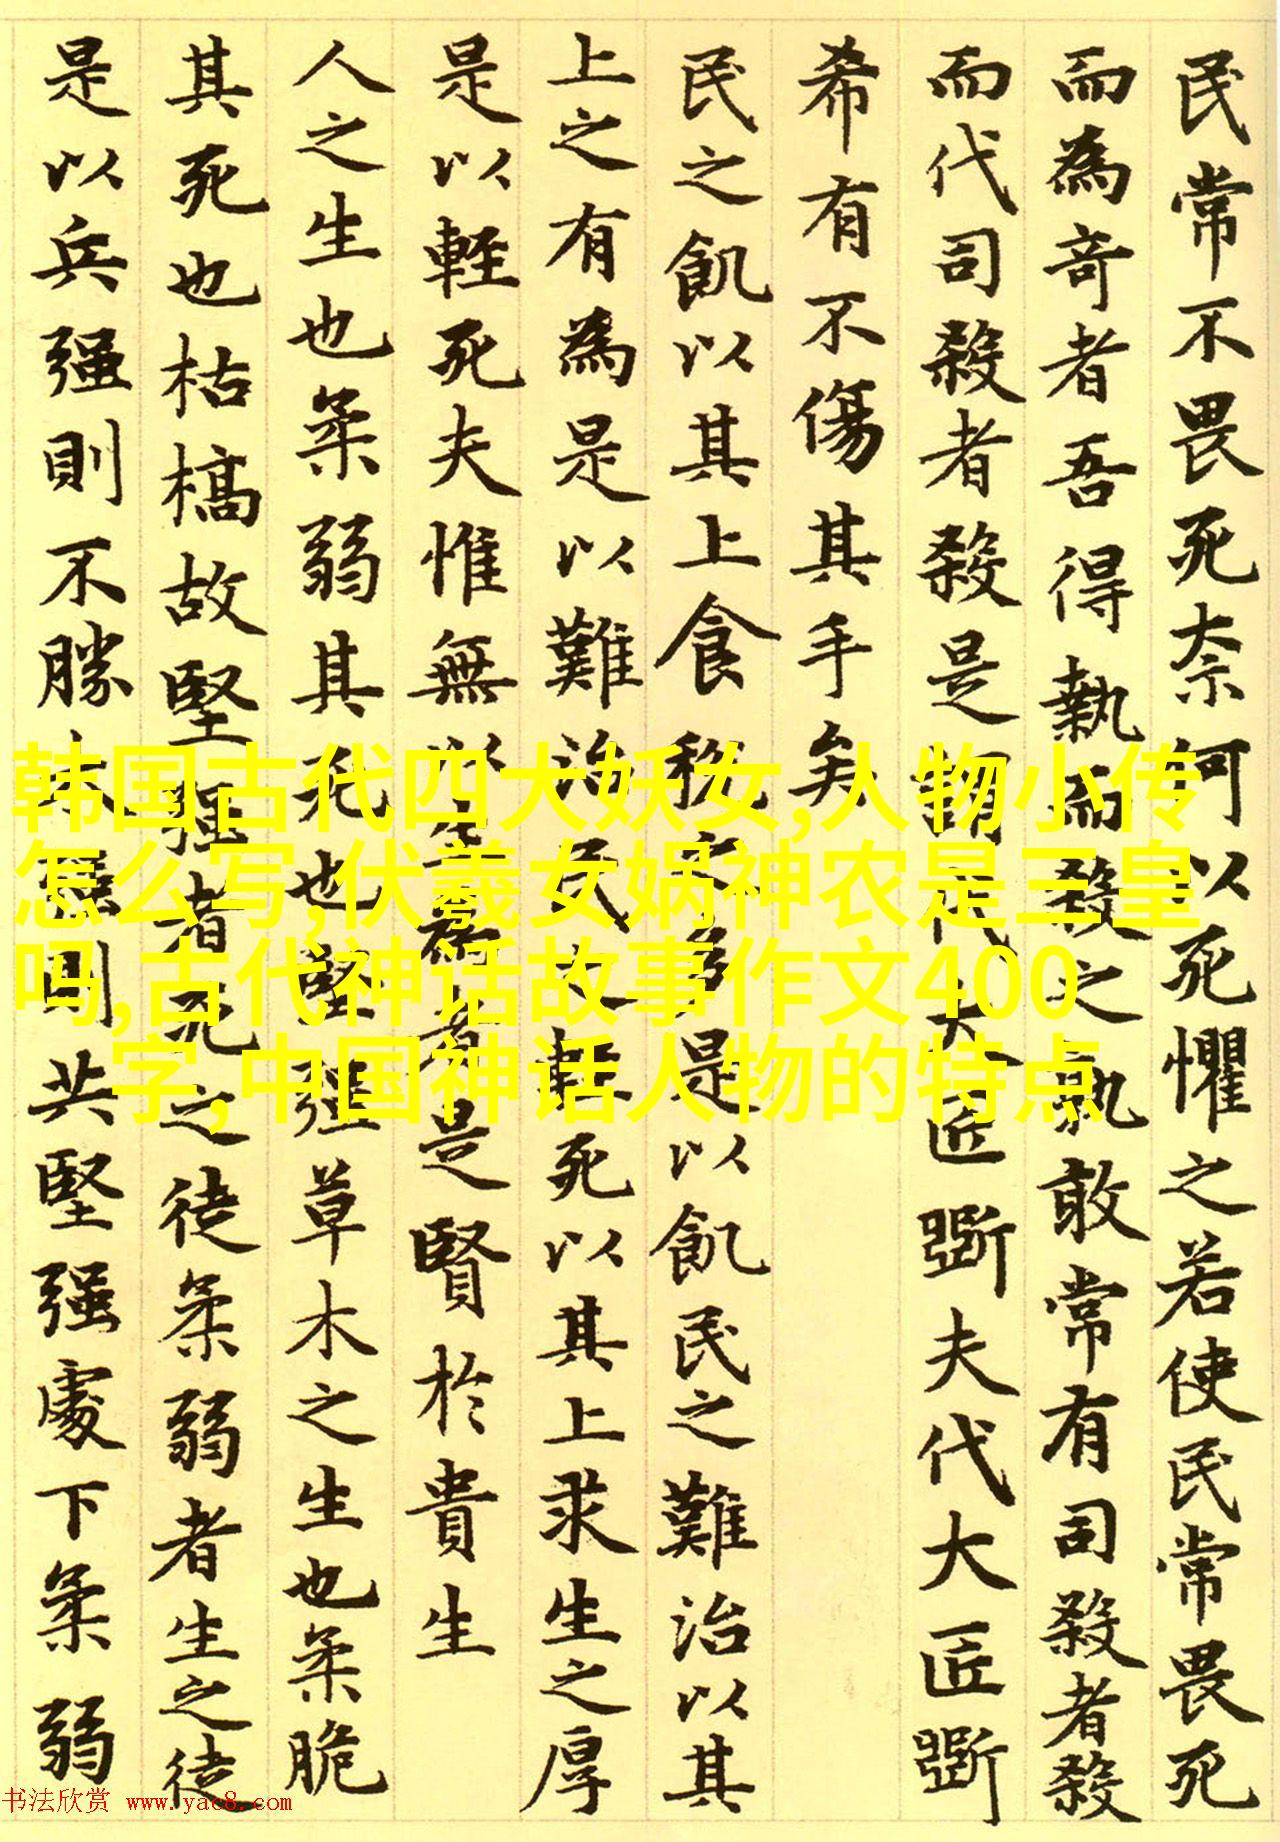 民常不畏死奈何以死懼之若使民常畏死
而為奇者吾得執而殺之孰敢常有司殺者殺
而代司殺者殺是謂代大匠斲夫代大匠斲
希有不傷其手矣
民之飢以其上食稅之多是以飢民之難治以其
上之有為是以難治民之輕死以其上求生之厚
是以輕死夫惟無以生為者是賢於貴生
人之生也柔弱其死也堅強草木之生也柔脆
其死也枯槁故堅强者死之徒柔弱者生之徒
是以兵强則不勝木强則共堅强處下柔弱
韩国古代四大妖女,人物小传
怎么写,伏羲女娲神农是三皇
吗,古代神话故事作文400
字,中国神话人物的特点
书法欣赏 www.yac8.com